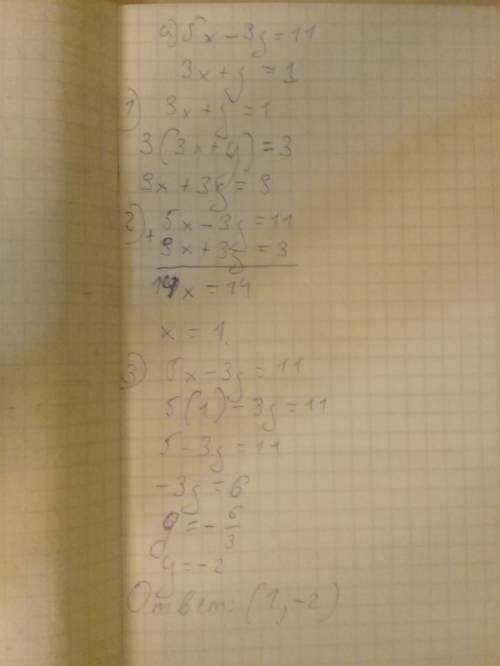 а) 5x-3y=11
3x+y=1
1) 3x+y=1
3(3x+y)=3
9x+3y=3
2) + 5x-3y=11
9x+3y=3
14x=14
x=1.
3) 5x-3y=11
5(1)-3y=11
5-3y=11
-3y=6
y=-6/3
y=-2
Ответ: (1,-2)